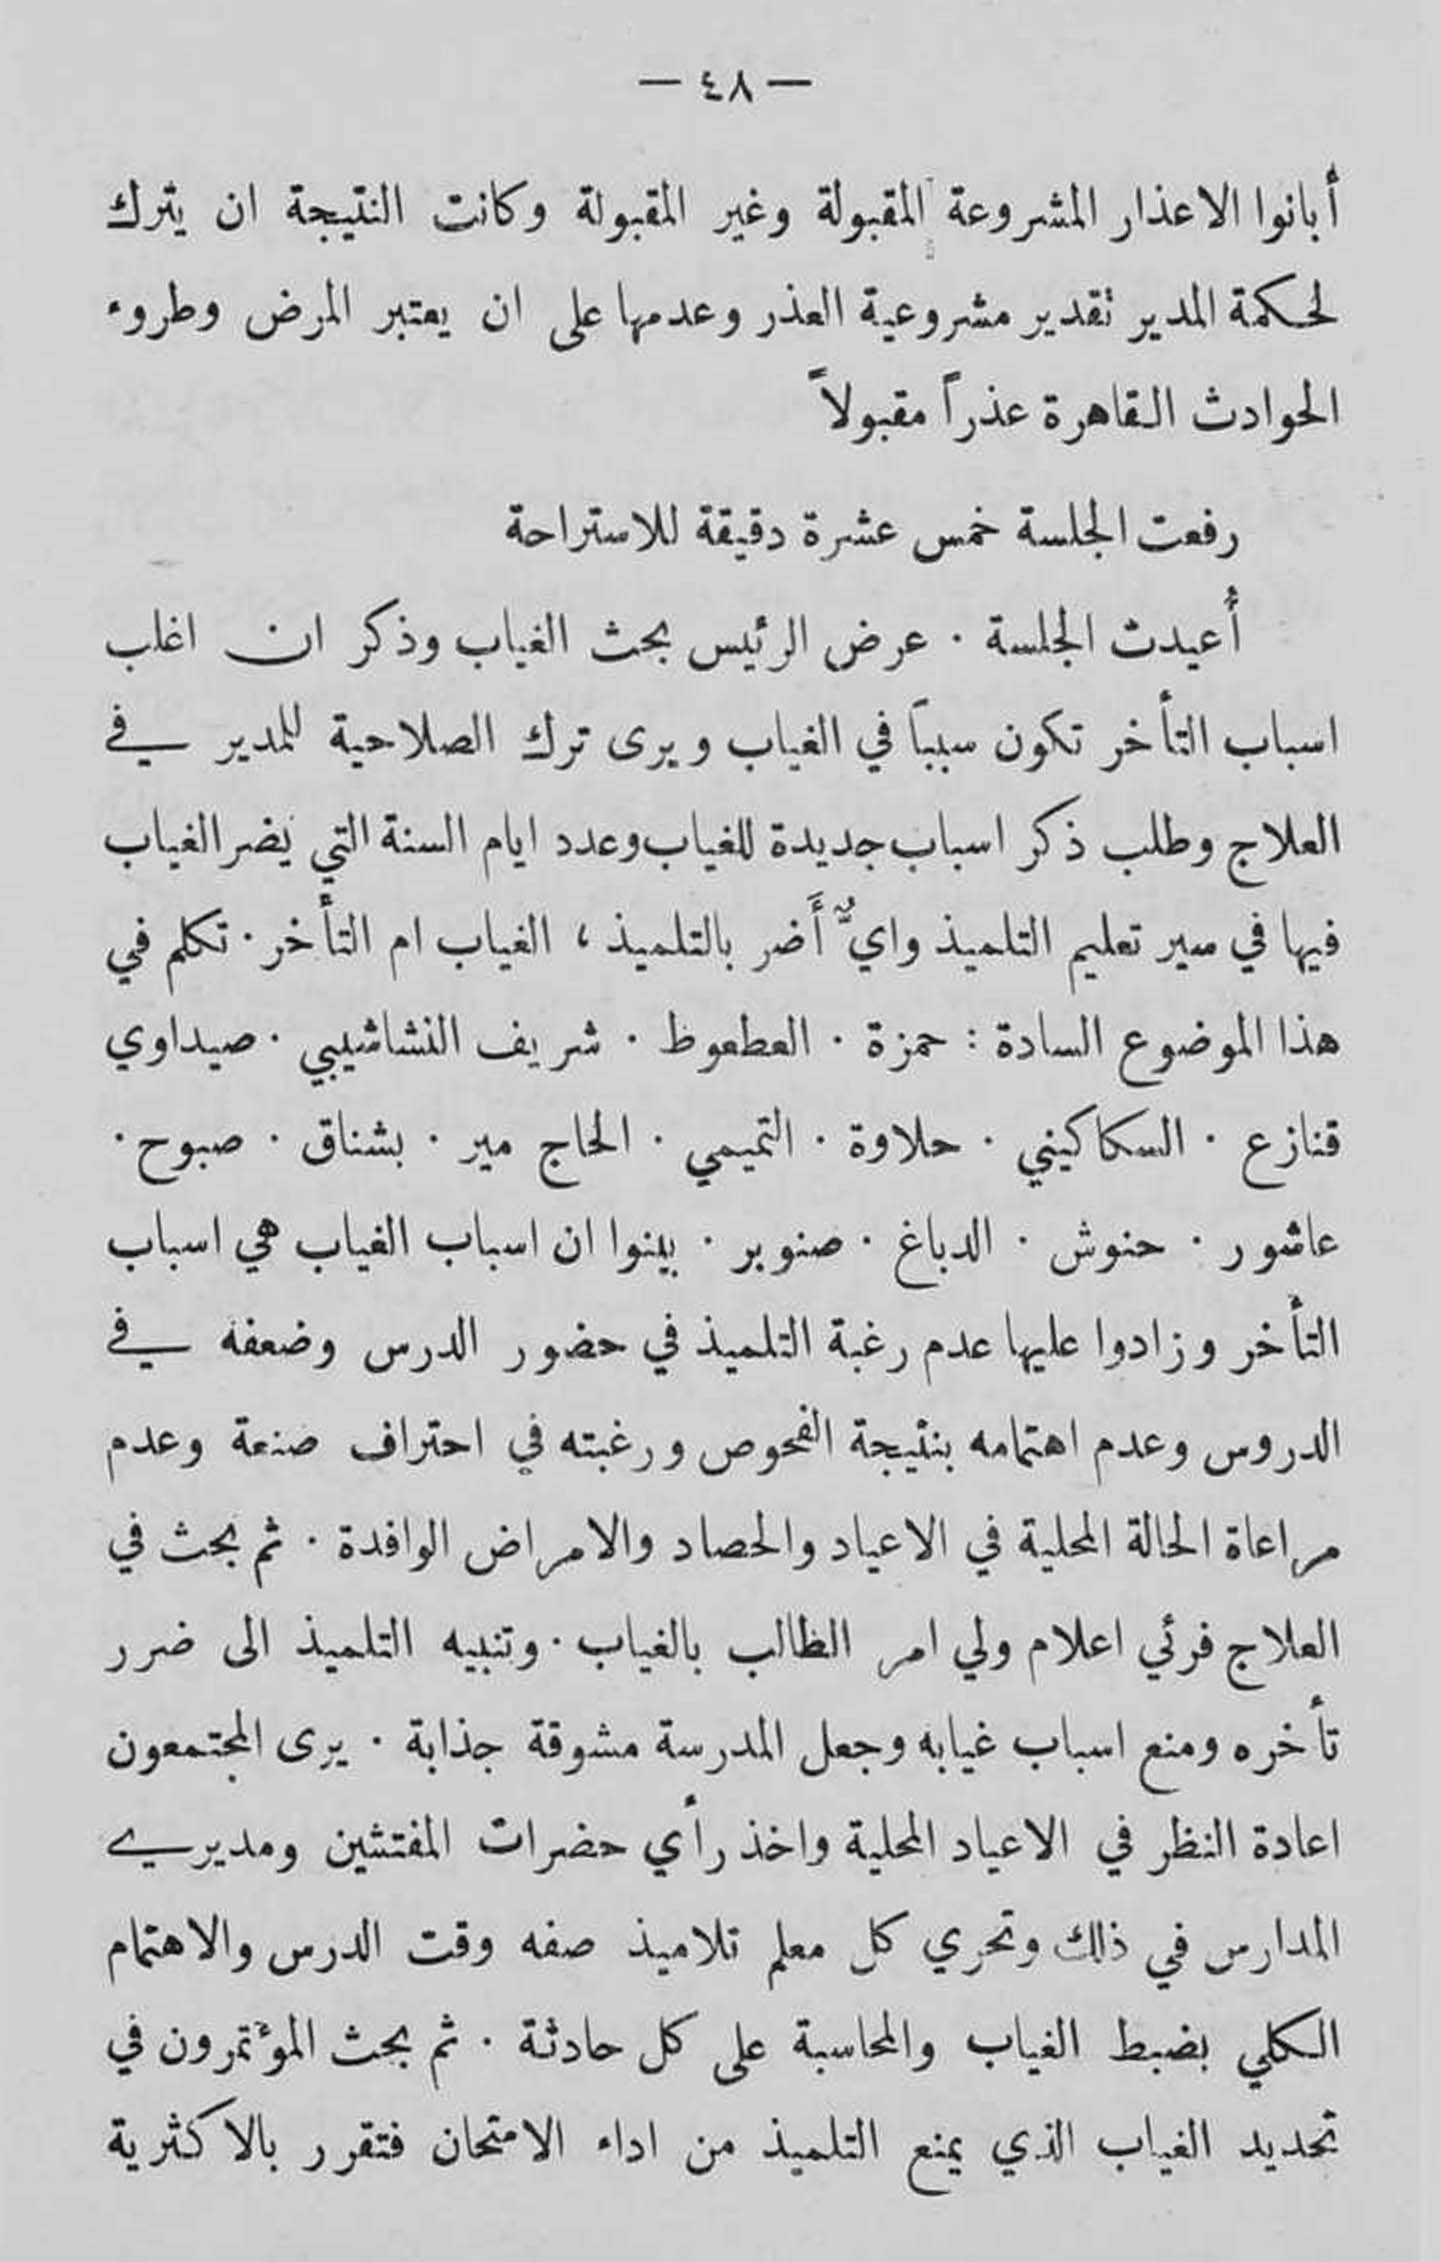 — ٤٨ —
أبانوا الاعذار المشروعة المقبولة وغير المقبولة وكانت النتيجة ان يترك
لحكمة المدير تقدير مشروعية العذر وعدمها على ان يعتبر المرض وطروء
الحوادث القاهرة عذراً مقبولاً
رفعت الجلسة خمس عشرة دقيقة للاستراحة
أُعيدت الجلسة · عرض الرئيس بحث الغياب وذكر ان اغلب
اسباب التأخر تكون سبباً في الغياب ويرى ترك الصلاحية للمدير في
العلاج وطلب ذكر اسباب جديدة للغياب وعدد ايام السنة التي يضر الغياب
فيها في سير تعليم التلميذ وايٌّ أَضر بالتلميذ ، الغياب ام التأخر · تكلم في
هذا الموضوع السادة : حمزة · العطعوط · شريف النشاشيبي · صيداوي
قنازع · السكاكيني · حلاوة · التميمي · الحاج مير · بشناق · صبوح ·
عاشور · حنوش · الدباغ · صنوبر · بينوا ان اسباب الغياب هي اسباب
التأخر وزادوا عليها عدم رغبة التلميذ في حضور الدرس وضعفه في
الدروس وعدم اهتمامه بنتيجة الفحوص ورغبته في احتراف صنعة وعدم
مراعاة الحالة المحلية في الاعياد والحصاد والامراض الوافدة · ثم بحث في
العلاج فرئي اعلام ولي امر الطالب بالغياب · وتنبيه التلميذ الى ضرر
تأخره ومنع اسباب غيابه وجعل المدرسة مشوقة جذابة · يرى المجتمعون
اعادة النظر في الاعياد المحلية واخذ رأي حضرات المفتشين ومديري
المدارس في ذلك وتحري كل معلم تلاميذ صفه وقت الدرس والاهتمام
الكلي بضبط الغياب والمحاسبة على كل حادثة · ثم بحث المؤتمرون في
تحديد الغياب الذي يمنع التلميذ من اداء الامتحان فتقرر بالاكثرية